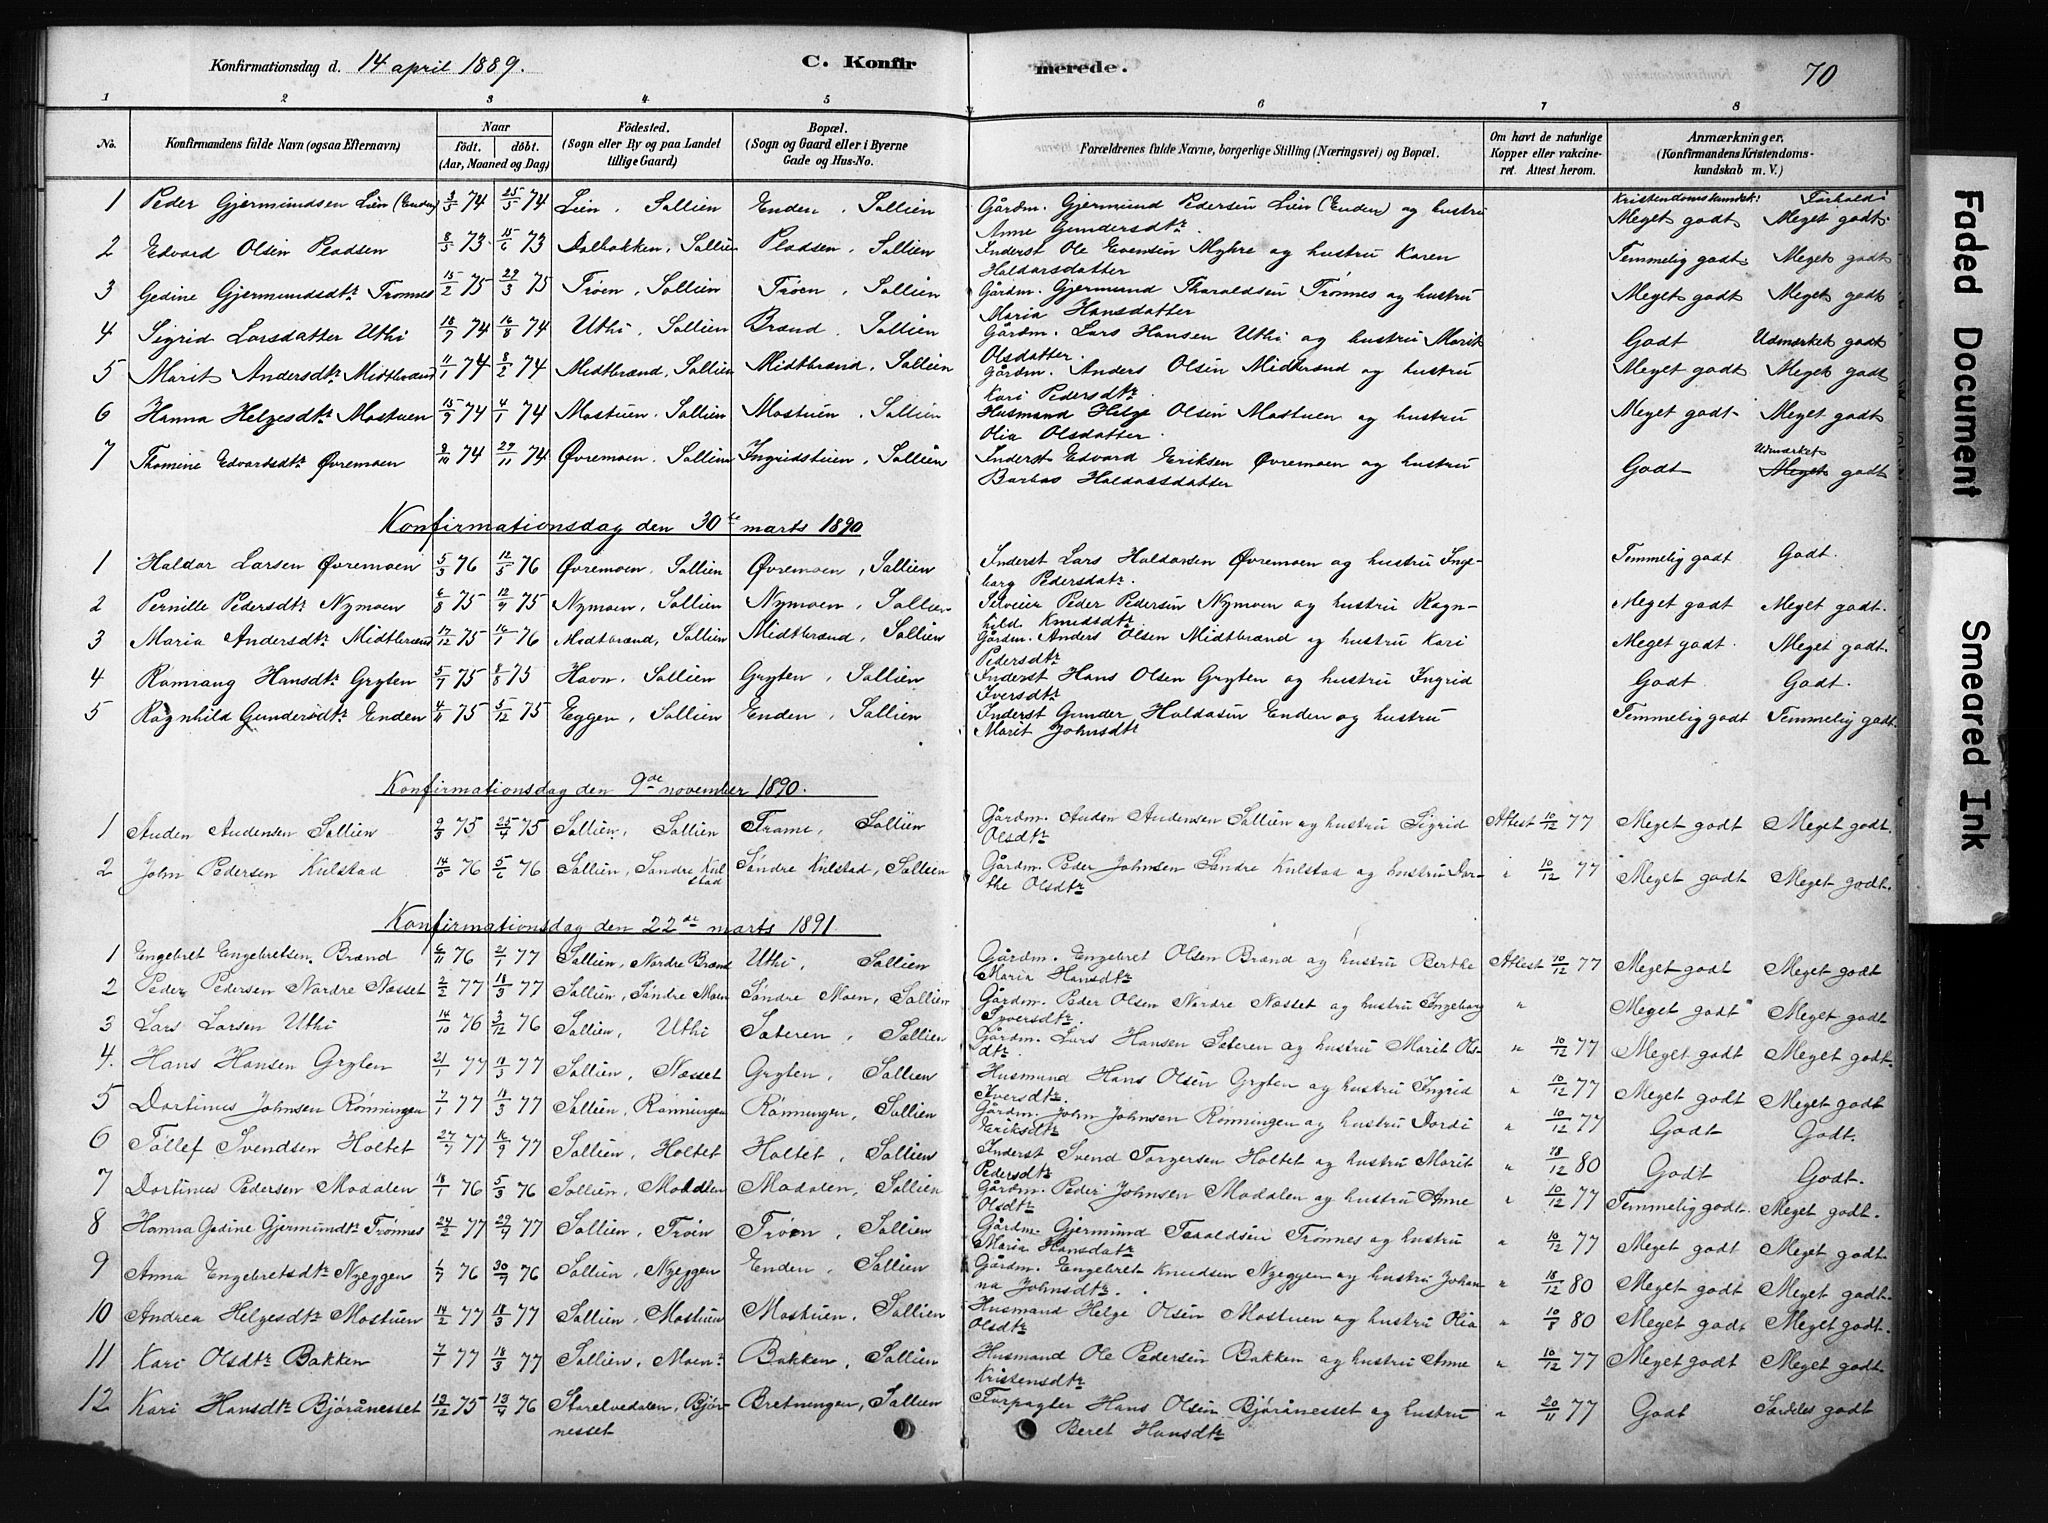 Konfirmationsdag d. 14 april 1889. C. Konfirmerede. 70
1 2 3 4 5 6 7 8
No. Konfirmandens fulde Navn (ogsaa Efternavn) Naar født. døbt. (Aar, Maaned og Dag) Födested. (Sogn eller By og paa Landet tillige Gaard) Bopæl. (Sogn og Gaard eller i Byerne Gade og Hus-No. Forældrenes fulde Navne, borgerlige Stilling (Næringsvei) og Bopæl. Om havt de naturlige Kopper eller vakcineret. Attest herom. Anmærkninger. (Konfirmandens Kristendomskundskab m. V.)
Kristendomskundsk: Forhold:
1 Peder Gjermundsen Lien (Enden) 3/5 74 25/5 74 Lien, Sollien Enden, Sollien Gårdm. Gjermund Pedersen Lien (Enden) og hustru Meget godt Meget godt.
Anne Gundersdtr.
2 Edvard Olsen Pladsen 8/5 73 15/6 73 Dalbakken, Sollien Pladsen, Sollien Inderst Ole Evensen Myhre og hustru Karen Temmelig godt Meget godt
Haldorsdatter
3 Gedine Gjermundsdtr Trønnes 15/2 75 29/3 75 Trøen, Sollien Trøen, Sollien Gårdm. Gjermund Tharaldsen Trønnes og hustru Meget godt Meget godt
Maria Hansdatter
4 Sigrid Larsdatter Uthi 18/7 74 16/8 74 Uthi, Sollien Brænd, Sollien Gårdm. Lars Hansen Uthi og hustru Marit Godt Udmærket godt
Olsdatter.
5 Marit Andersdtr Midtbrænd 11/1 74 8/2 74 Midtbrænd, Sollien Midtbrænd, Sollien Gårdm. Anders Olsen Midtbrænd og hustru Meget godt Meget godt
Kari Pedersdtr.
6 Hanna Helgesdtr Mostuen 15/9 74 4/1 74 Mostuen, Sollien Mostuen, Sollien Husmand Helge Olsen Mostuen og hustru Meget godt Meget godt
Olia Olsdatter.
7 Thomine Edvardsdtr Øvremoen 9/10 74 29/11 74 Øvremoen, Sollien Ingridstuen, Sollien Inderst Edvard Eriksen Øvremoen og hustru Godt Udmærket Meget godt
Barbro Haldorsdatter
Konfirmationsdag den 30te marts 1890
1 Haldor Larsen Øvremoen 5/3 76 12/5 76 Øvremoen, Sollien Øvremoen, Sollien Inderst Lars Haldorsen Øvremoen og hustru Inge- Temmelig godt Godt.
borg Pedersdatr.
2 Pernille Pedersdtr Nymoen 6/8 75 12/9 75 Nymoen, Sollien Nymoen, Sollien Selveier Peder Pedersen Nymoen og hustru Ragn- Meget godt Meget godt.
hild Knudsdtr.
3 Maria Andersdtr Midtbrænd 17/12 75 16/1 76 Midtbrænd, Sollien Midtbrænd, Sollien Gårdm. Anders Olsen Midtbrænd og hustru Kari Meget godt. Meget godt.
Pedersdtr
4 Ramvaug Hansdtr Gryten 5/7 75 8/8 75 Havn, Sollien Gryten, Sollien Inderst Hans Olsen Gryten og hustru Ingrid Godt Godt.
Iversdtr
5 Ragnhild Gundersdtr Enden 4/11 75 5/12 75 Eggen, Sollien Enden, Sollien Inderst Gunder Haldosen Enden og hustru Temmelig godt Temmelig godt.
Marit Johnsdtr
Konfirmationsdag den 9de november 1890.
1 Auden Audensen Sollien 2/3 75 25/4 75 Sollien, Sollien Trame, Sollien Gårdm. Auden Audensen Sollien og hustru Sigrid Attest 10/12 77 Meget godt Meget godt.
Olsdtr
2 John Pedersen Kulstad 14/5 76 5/6 76 Sollien, Søndre Kulstad Søndre Kulstad, Sollien Gårdm. Peder Johnsen Søndre Kulstad og hustru Dor- " 10/12 77 Meget godt Meget godt.
the Olsdtr
Konfirmationsdag den 22de marts 1891.
1 Engebret Engebretsen Brænd 6/11 76 21/1 77 Sollien, Nordre Brænd Uthi, Sollien Gårdm. Engebret Olsen Brænd og hustru Berthe Attest 10/12 77 Meget godt Meget godt
Maria Hansdtr
2 Peder Pedersen Nordre Næsset 2/2 77 18/3 77 Sollien, Søndre Moen Søndre Moen, Sollien Gårdm. Peder Olsen Nordre Næsset og hustru Ingeborg " Meget godt Meget godt
Syversdtr.
3 Lars Larsen Uthi 14/10 76 3/12 76 Sollien, Uthi Sæteren, Sollien Gårdm. Lars Hansen Sæteren og hustru Marit Ols- " 10/12 77 Meget godt Meget godt
dtr.
4. Hans Hansen Gryten 21/1 77 18/3 77 Sollien, Næsset Gryten, Sollien Husmand Hans Olsen Gryten og hustru Ingrid " 10/12 77 Meget godt Meget godt
Iversdtr.
5 Dortinus Johnsen Rønningen 7/1 77 11/3 77 Sollien, Rønningen Rønningen, Sollien Gårdm. John Johnsen Rønningen og hustru Dordi " 10/12 77 Godt Godt.
Eriksdtr
6 Tollef Svendsen Holtet 27/7 77 16/9 77 Sollien, Holtet Holtet, Sollien Inderst Svend Torgersen Holtet og hustru Marit " 18/12 80 Godt Godt.
Pedersdtr
7 Dortinus Pedersen Modalen 18/1 76 5/3 76 Sollien, Moddlen Modalen, Sollien Gårdm. Peder Johnsen Modalen og hustru Anne " 10/12 77 Temmelig godt. Meget godt.
Olsdtr
8 Hanna Gedine Gjermundtr Trønnes 24/2 77 29/4 77 Sollien, Trøen Trøen, Sollien Gårdm. Gjermund Taraldsen Trønnes og hustru " 10/12 77 Meget godt Meget godt.
Maria Hansdatr
9 Anna Engebretsdtr Nyeggen 1/7 76 30/7 76 Sollien, Nyeggen Enden, Sollien Gårdm. Engebret Knudsen Nyeggen og hustru Johan- " 18/12 80 Meget godt Meget godt.
na Johnsdtr.
10 Andrea Helgesdtr Mostuen 14/2 77 18/3 77 Sollien, Mostuen Mostuen, Sollien Husmand Helge Olsen Mostuen og hustru Olia " 10/8 80 Meget godt Meget godt.
Olsdtr
11 Kari Olsdtr Bakken 7/1 77 18/3 77 Sollien, Moen Bakken, Sollien Husmand Ole Pedersen Bakken og hustru Anne " 10/12 77 Meget godt Meget godt
Kristensdtr
12 Kari Hansdtr Bjøraanesset 12/12 75 17/9 76 Storelvedalen, Bjør- Bretningen, Sollien Forpagter Hans Olsen Bjørånesset og hustru " 20/11 77 Godt Særdeles godt
nesset Beret Hansdtr
Faded Document
Smeared Ink